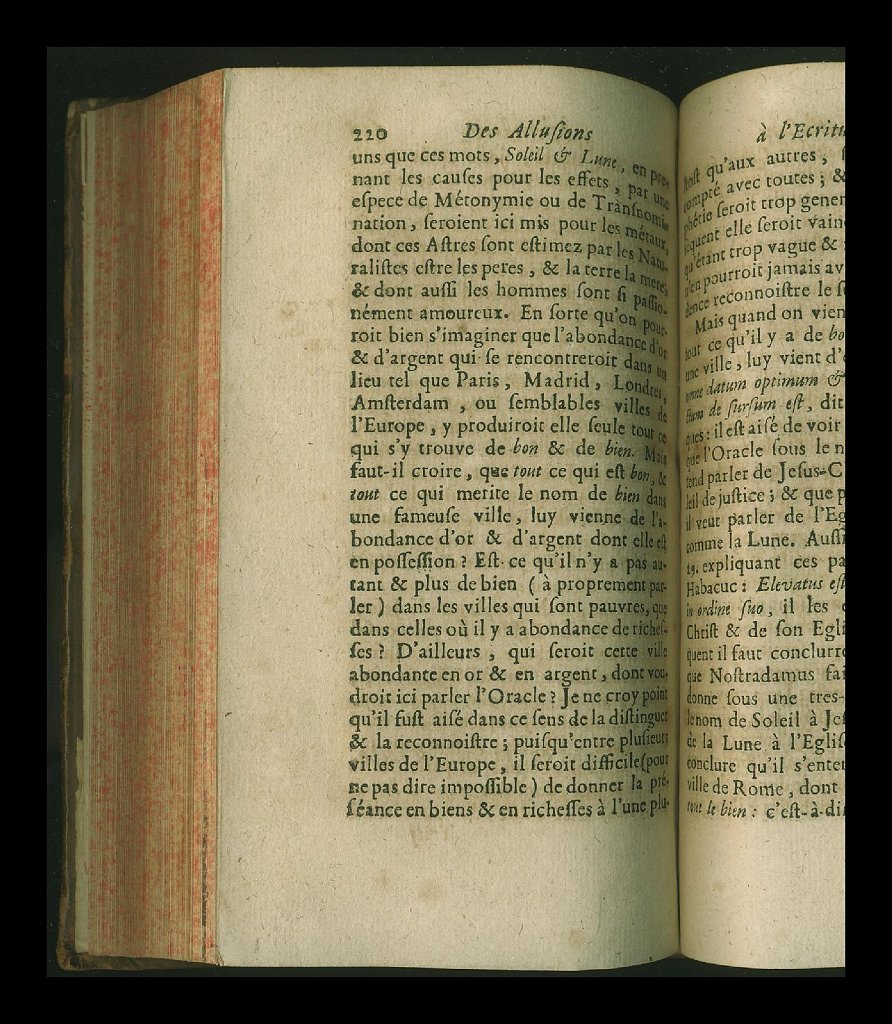 220 Des Alluſions
uns que ces mots, Soleil & Lune, en pre-
nant les cauſes pour les effets, par une
eſpece de Métonymie ou de Tranſnomi-
nation, ſeroient ici mis pour les métaux,
dont ces Aſtres ſont eſtimez par les Natu-
raliſtes eſtre les peres, & la terre la mere;
& dont auſſi les hommes ſont ſi paſſio-
nément amoureux. En ſorte qu'on pour-
roit bien s'imaginer que l'abondance d'or
& d'argent qui ſe rencontreroit dans un
lieu tel que Paris, Madrid, Londres,
Amſterdam, ou ſemblables villes de
l'Europe, y produiroit elle ſeule tout ce
qui s'y trouve de bon & de bien. Mais
faut-il croire, que tout ce qui eſt bon, &
tout ce qui merite le nom de bien dans
une fameuſe ville, luy vienne de l'a-
bondance d'or & d'argent dont elle eſt
en poſſeſſion? Eſt-ce qu'il n'y a pas au-
tant & plus de bien (à proprement par-
ler) dans les villes qui ſont pauvres, que
dans celles où il y a abondance de richeſ-
ſes? D'ailleurs, qui ſeroit cette ville
abondante en or & en argent, dont vou-
droit ici parler l'Oracle? Je ne croy point
qu'il fuſt aiſé dans ce ſens de la diſtinguer
& la reconnoiſtre; puiſqu'entre pluſieurs
villes de l'Europe, il ſeroit difficile (pour
ne pas dire impoſſible) de donner la pré-
ſéance en biens & en richeſſes à l'une plu-
à l'Ecritu
ſtoſt qu'aux autres,
compté avec toutes; &
phétie ſeroit trop gener
ſequent elle ſeroit vain
qu'étant trop vague &
n'en pourroit jamais av
dence reconnoiſtre le
Mais quand on vien
tout ce qu'il y a de bo
une ville, luy vient d'
omne datum optimum &
ctum de ſurſum eſt, dit
ques: il eſt aiſé de voir
que l'Oracle ſous le n
tend parler de Jeſus-C
leil de juſtice; & que p
il veut parler de l'Eg
comme la Lune. Auſſi
19. expliquant ces pa
Habacuc: Elevatus eſt
in ordine ſuo, il les
Chriſt & de ſon Egli
quent il faut conclurre
que Noſtradamus fai
donne ſous une tres-
le nom de Soleil à Jeſ
de la Lune à l'Egliſ
conclure qu'il s'enten
ville de Rome, dont
tout le bien: c'eſt-à-di